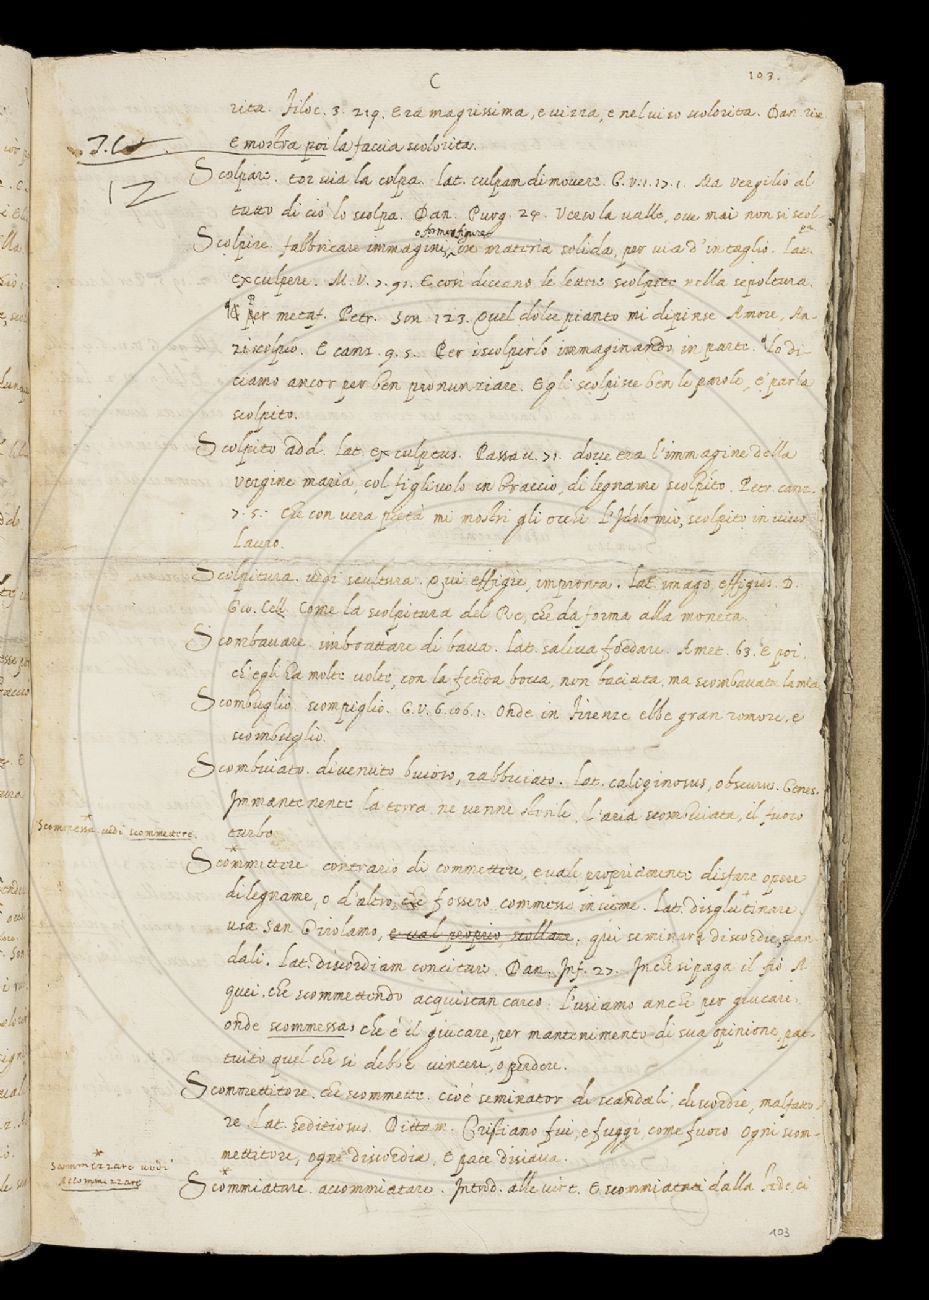 C
103.
rita. Filoc. 3. 219. Era magrissima, e vizza, e nel viso scolorita. Dan. rim
e mostra poi la faccia scolorita.
12
Scolpare. tor via la colpa. lat. culpam dimovere. G. V. 1. 17. 1. Ma Vergilio al
tutto di ciò lo scolpa. Dan. Purg. 24. Verso la valle, ove mai non si scol-
pa
o formar figure
Scolpire. fabbricare immagini, in materia solida, per via d'intaglio. Lat.
exculpere. M. V. 7. 91. E così diceano le lettere scolpite nella sepoltura.
¶ per metaf. Petr. Son 123. Quel dolce pianto mi dipinse Amore, An-
zi scolpío. E canz. 9. 5. Per iscolpirlo immaginando in parte. Lo di-
ciamo ancor per ben pronunziare. Egli scolpisce ben le parole, e parla
scolpito.
Scolpito add. lat. exculptus. Passav. 71. dove era l'immagine della
vergine maria, col figlivolo in braccio, di legname scolpito. Petr. canz.
7. 5. Che con vera pietà mi mostri gli occhi L'Idolo mio, scolpito in vivo
Lauro.
Scolpitura. vedi scultura. Qui effigie, impronta. Lat. imago, effigies. D.
Gio. Cell. Come la scolpitura del Re, che da forma alla moneta.
Scombavare. imbrattare di bava. Lat. saliva foedare. Amet. 63. E poi,
ch'egli ha molte volte, con la fetida bocca, non baciata, ma scombavata la mia
Scombuglio. scompiglio. G. V. 6. 106. 1. Onde in Firenze ebbe gran romore, e
scombuglio.
Scombuiato. divenuto buioso, rabbuiato. Lat. caliginosus, obscurus. Genes.
Immantenente la terra ne venne sterile, l'aria scombuiata, il fuoco
turbo.
Scommessa vedi scommettere.
Scommettere contrario di commettere, e vale propriamente disfare opere
di legname, o d'altro, che fossero commesse insieme. Lat. disglutinare.
usa San Girolamo, e val proprio, scollare, qui seminare discordie, scan-
dali. Lat. discordiam concitare. Dan. Inf. 27. In che si paga il fio A
quei, che scommettendo acquistan carco. L'usiamo anche per giucare.
onde scommessa, che è il giucare, per mantenimento di sua opinione, pat-
tuito quel che si debbe vincere, o perdere.
Scommettitore. che scommette. cioè seminator di scandali, discordie, malfatto
re Lat. seditiosus. Dittam. Cristiano fui, e fuggi come fuoco Ogni scom-
mettitore, ogni discordia, E pace disiava.
Scommezzare vedi
Accommezzare
Scommiatare. accommiatare. Introd. alle virt. E scommiatati dalla fede, ci
103